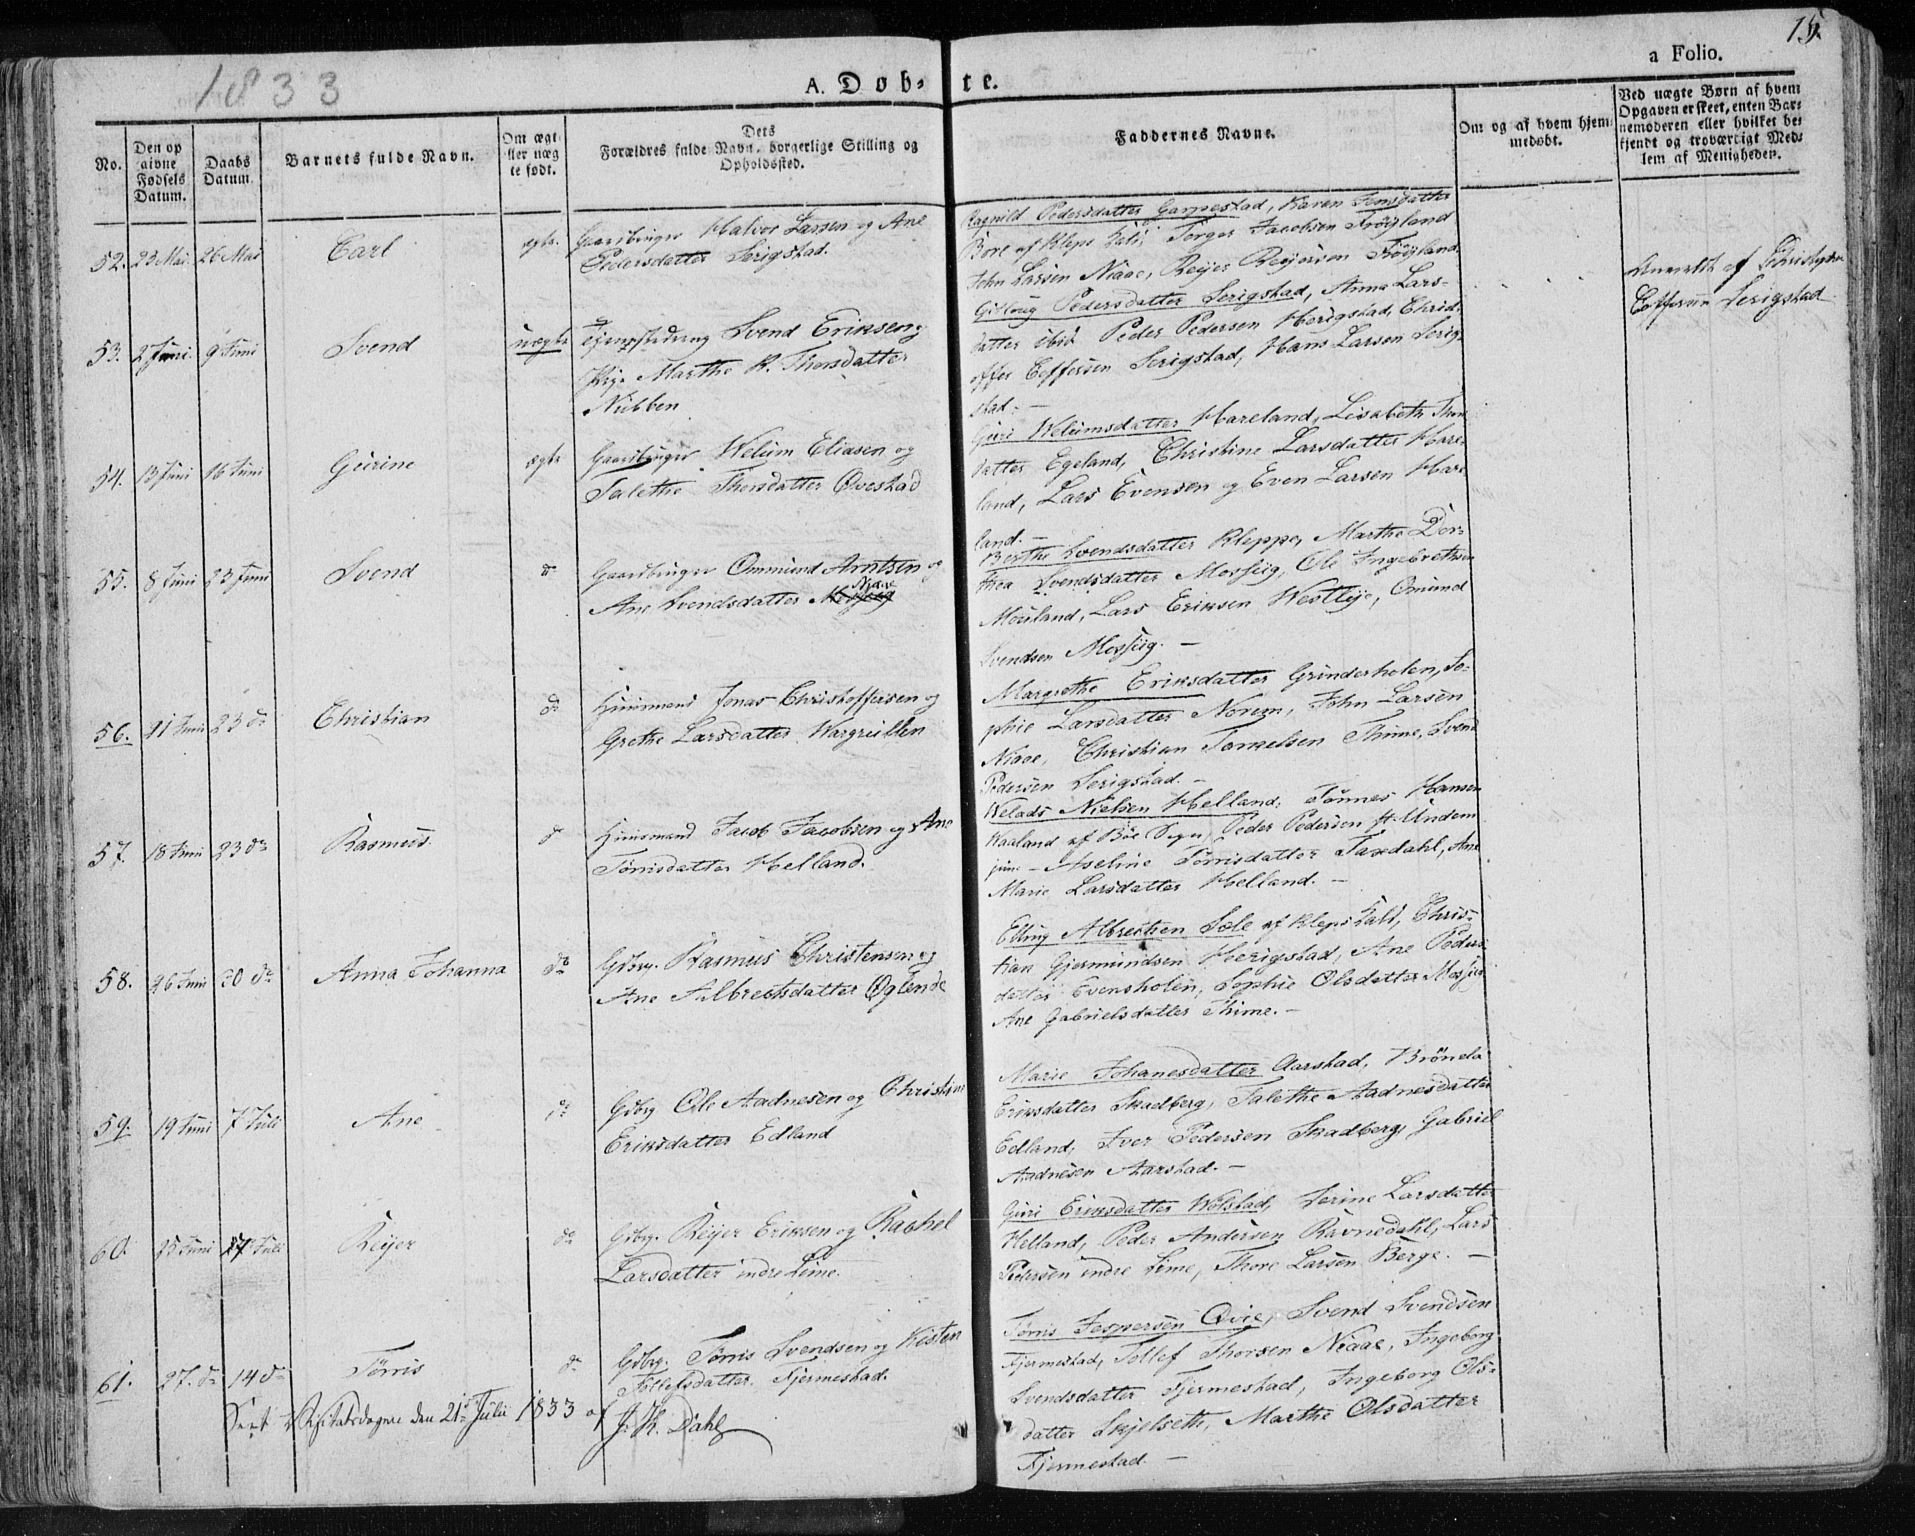 15.
a Folio.
1833
A. Døb-
te.
No.
Den op
givne
Fødsels
Datum.
Daabs
Datum.
Barnets fulde Navn.
Om ægt
eller uæg
te født.
Dets
Forældres fulde Navn, borgerlige Stilling og
Opholdssted.
Faddernes Navne.
Om og af hvem hjem-
medøbt.
Ved uægte Børn af hvem
Opgaven er skeet, enten Bar-
nemoderen eller hvilket be-
kjendt og troværdigt Med-
lem af Menigheden.
52. 23 Mai 26 Mai Carl ægte Gaardbruger Halvor Larsen og Ane
Pedersdatter Serigstad.
Ragnild Pedersdatter Garpestad, Karen Jensdatter
Bore af Kleps Kald, Torger Jacobsen Frøyland
John Larsen Niaae, Reyer Reyersen Frøyland
53. 2 Juni 9 Juni Svend uægte Svend Eriksen og
Pige Marthe R. Thorsdatter
Nubben
Gitloug Pedersdatter Serigstad, Anna Lars-
datter ibid Peder Pedersen Herigstad, Christ-
offer Eeffersen Serigstad, Hans Larsen Serig-
stad. —
Anmeldt af Christopher
Eeffersen Serigstad
54. 13 Juni 16 Juni Gurine ægte Gaardbruger Welum Eliasen og
Talethe Thorsdatter Øvestad
Guri Welumsdatter Hareland, Lisabeth Thors
datter Egeland, Christine Larsdatter Hare-
land, Lars Evensen og Even Larsen Hare
land. —
55. 8 Juni 23 Juni Svend do Gaardbruger Ommund Arntzen og
Niaae
Ane Svendsdatter Mossig
Berthe Svendsdatter Kleppe, Marthe Dor-
thea Svendsdatter Mossiig, Ole Ingebrethsen
Mouland, Lars Eriksen Westlye, Omund
Svendsen Mossiig. —
56. 11 Juni 23 do Christian do Huusmand Jonas Christoffersen og
Grethe Larsdatter Wargeullen
Margrethe Eriksdatter Grinderholen, So-
phie Larsdatter Norem, John Larsen
Niaae, Christian Torkelsen Thime, Svend
Pedersen Serigstad. —
57. 18 Juni 23 do Rasmus do Huusmand Jacob Jacobsen og Ane
Tørrisdatter Helland.
Welads Nielsen Helland, Tønnes Hansen
Waaland af Bøe Sogn, Peder Pedersen
Aseline Tørrisdatter Taxdahl, Ane
Marie Larsdatter Helland. —
58. 26 Juni 30 do Anna Johanna do Gdbrg. Rasmus Christensen og
Ane Albrechtsdatter Øglende
Elling Albrechtsen Sele af Kleps Kald, Chris-
tian Gjermundsen Herigstad, Ane Peders-
datter Evensholen, Sophie Olsdatter Mossiig
Ane Gabrielsdatter Thime. —
59. 19 Juni 7 Juli Ane do Gdbrg Ole Aadnesen og Christine
Eriksdatter Edland
Marie Johanesdatter Aarstad, Brönela
Eriksdatter Skadberg, Talethe Aadnesdatter
Edland, Iver Pedersen Skadberg, Gabriel
Aadnesen Aarstad. —
60. 25 Juni 14 Juli Reijer do Gdbrg. Reijer Eriksen og Rachel
Larsdatter indre Lime.
Guri Eriksdatter Wolstad, Serine Larsdatter
Helland, Peder Andersen Ravnedahl, Lars
Pedersen indre Lime, Thore Larsen Berge. —
61. 27. do 14 do Tørris do Gdbrg. Tørris Svendsen og Kisten
Tollefsdatter Fjermestad.
Tørris Jespersen Qvie, Svend Svendsen
Fjermestad, Tollef Thorsen Niaae, Ingeborg
Svendsdatter Fjermestad, Ingeborg Ols-
datter Skjelseth, Marthe Olsdatter
Fjermestad. —
Seet Visitatsdagen den 21de Julii 1833 af
Dahl